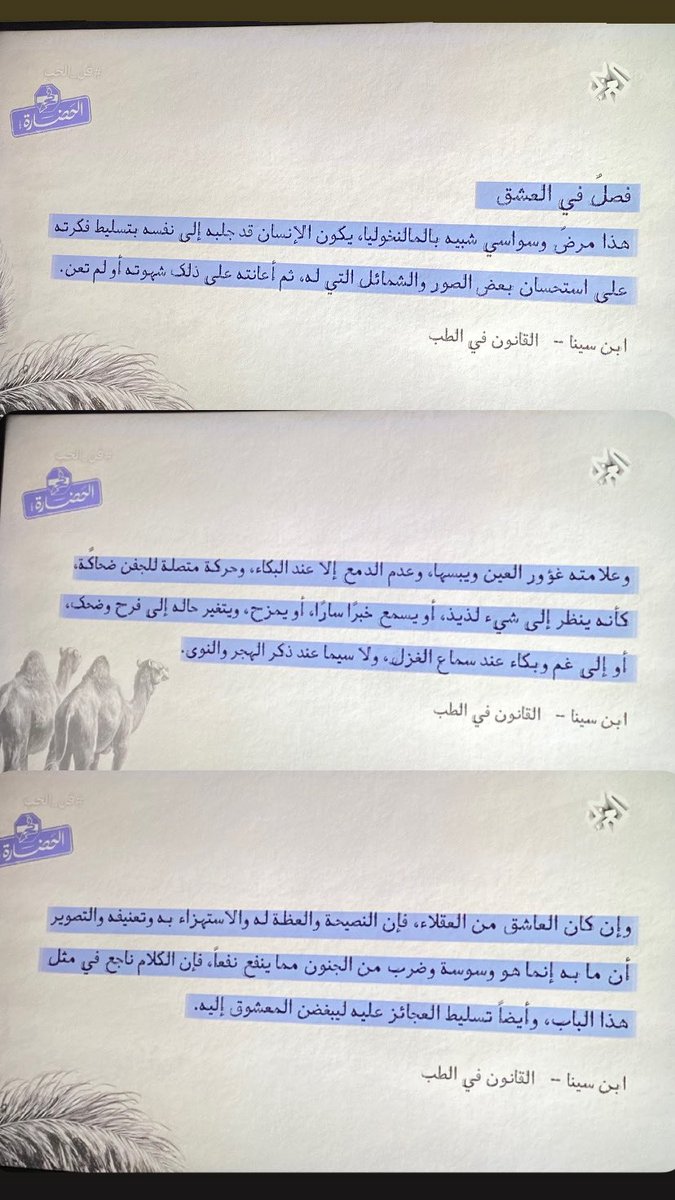 #فن_الحب
الحضارة
فصلُ في العشق
هذا مرضٌ وسواسي شبيه بالمالنخوليا، يكون الإنسان قد جلبه إلى نفسه بتسليط فكرته
على استحسان بعض الصور والشمائل التي له، ثم أعانته على ذلك شهوته أو لم تعن.
ابن سينا – القانون في الطب
#فن_الحب
الحضارة
وعلامته غؤور العين ويبسها، وعدم الدمع إلا عند البكاء، وحركة متصلة للجفن ضحاكًة،
كأنه ينظر إلى شيء لذيذ، أو يسمع خبرًا سارًا، أو يمزح، ويتغير حاله إلى فرح وضحك،
أو إلى غم وبكاء عند سماع الغزل، ولا سيما عند ذكر الهجر والنوى.
ابن سينا – القانون في الطب
#فن_الحب
الحضارة
وإن كان العاشق من العقلاء، فإن النصيحة والعظة له والاستهزاء به وتعنيفه والتصوير
أن ما به إنما هو وسوسة وضرب من الجنون مما ينفع نفعاً، فإن الكلام ناجع في مثل
هذا الباب، وأيضاً تسليط العجائز عليه ليبغضن المعشوق إليه.
ابن سينا – القانون في الطب